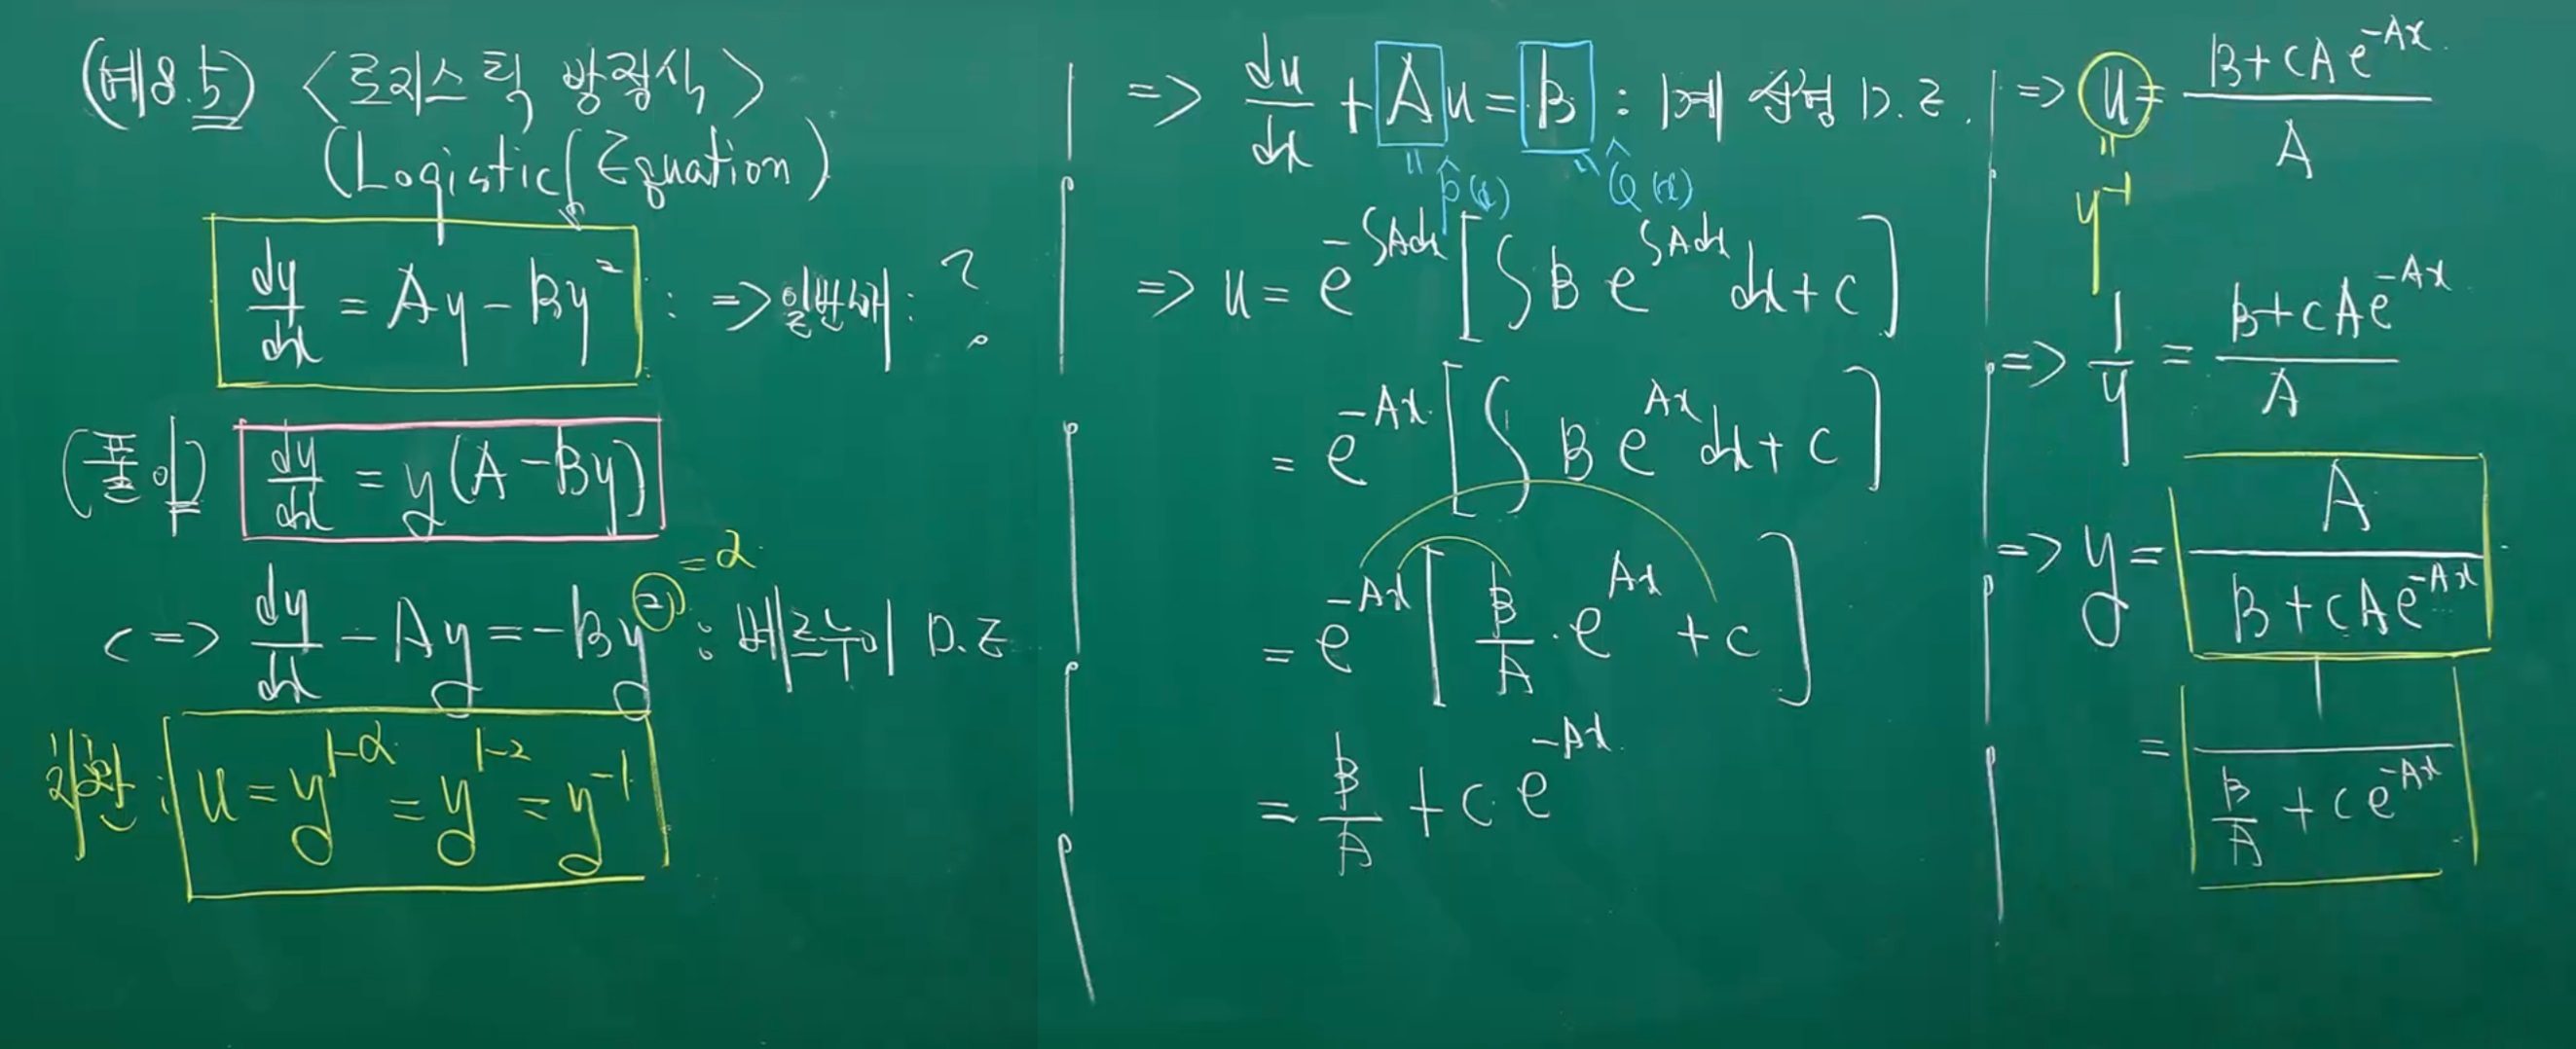 (예8.5) <로지스틱 방정식>
(Logistic Equation)
dy/dx = Ay - By² : => 일반해 : ?
(풀이) dy/dx = y(A - By)
<=> dy/dx - Ay = -By² : 베르누이 D.E
= α
치환 : u = y^(1-α) = y^(1-2) = y^(-1)
=> du/dx + Au = B : 1계 선형 D.E.
" P̂(x) " Q̂(x)
=> u = e^(-∫Adx) [∫B e^(∫Adx) dx + c]
= e^(-Ax) [∫ B e^(Ax) dx + c]
= e^(-Ax) [B/A · e^(Ax) + c]
= B/A + c e^(-Ax)
=> u = (B + cA e^(-Ax)) / A
"
y^(-1)
=> 1/y = (B + cA e^(-Ax)) / A
=> y = A / (B + cA e^(-Ax))
= 1 / (B/A + c e^(-Ax))